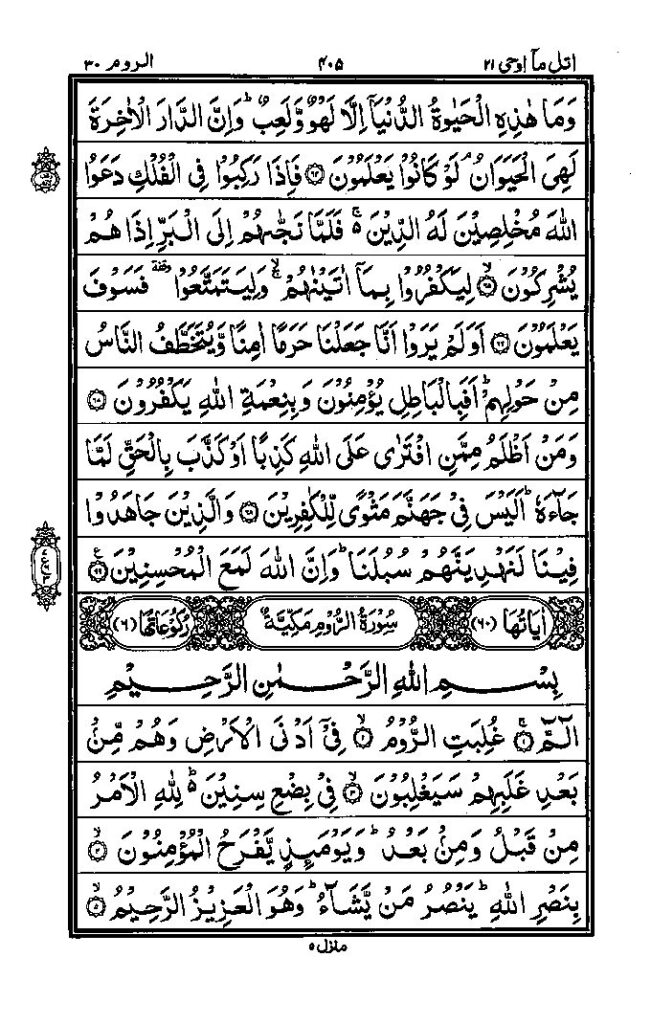 اتل مآ اوحی ۲۱ ۴۰۵ الروم ۳۰
وَمَا هٰذِهِ الْحَيٰوةُ الدُّنْيَآ اِلَّا لَهْوٌ وَّلَعِبٌ ؕ وَاِنَّ الدَّارَ الْاٰخِرَةَ
لَهِيَ الْحَيَوَانُ ۘ لَوْ كَانُوْا يَعْلَمُوْنَ ﴿۶۴﴾ فَاِذَا رَكِبُوْا فِي الْفُلْكِ دَعَوُا
اللّٰهَ مُخْلِصِيْنَ لَهُ الدِّيْنَ ۚ۬ فَلَمَّا نَجّٰىهُمْ اِلَى الْبَرِّ اِذَا هُمْ
يُشْرِكُوْنَ ﴿۶۵﴾ لِيَكْفُرُوْا بِمَآ اٰتَيْنٰهُمْ ۚۙ وَلِيَتَمَتَّعُوْا ٝ فَسَوْفَ
يَعْلَمُوْنَ ﴿۶۶﴾ اَوَلَمْ يَرَوْا اَنَّا جَعَلْنَا حَرَمًا اٰمِنًا وَّيُتَخَطَّفُ النَّاسُ
مِنْ حَوْلِهِمْ ؕ اَفَبِالْبَاطِلِ يُؤْمِنُوْنَ وَبِنِعْمَةِ اللّٰهِ يَكْفُرُوْنَ ﴿۶۷﴾
وَمَنْ اَظْلَمُ مِمَّنِ افْتَرٰى عَلَى اللّٰهِ كَذِبًا اَوْ كَذَّبَ بِالْحَقِّ لَمَّا
جَآءَهٗ ؕ اَلَيْسَ فِيْ جَهَنَّمَ مَثْوًى لِّلْكٰفِرِيْنَ ﴿۶۸﴾ وَالَّذِيْنَ جَاهَدُوْا
فِيْنَا لَنَهْدِيَنَّهُمْ سُبُلَنَا ؕ وَاِنَّ اللّٰهَ لَمَعَ الْمُحْسِنِيْنَ ﴿۶۹﴾
اٰيَاتُهَا (۶۰) سُوْرَةُ الرُّوْمِ مَكِّيَّةٌ رُكُوْعَاتُهَا (۶)
بِسْمِ اللّٰهِ الرَّحْمٰنِ الرَّحِيْمِ
الٓمّٓ ﴿۱﴾ غُلِبَتِ الرُّوْمُ ﴿۲﴾ فِيْٓ اَدْنَى الْاَرْضِ وَهُمْ مِّنْۢ
بَعْدِ غَلَبِهِمْ سَيَغْلِبُوْنَ ﴿۳﴾ فِيْ بِضْعِ سِنِيْنَ ؕ۬ لِلّٰهِ الْاَمْرُ
مِنْ قَبْلُ وَمِنْۢ بَعْدُ ؕ وَيَوْمَئِذٍ يَّفْرَحُ الْمُؤْمِنُوْنَ ﴿۴﴾
بِنَصْرِ اللّٰهِ ؕ يَنْصُرُ مَنْ يَّشَآءُ ؕ وَهُوَ الْعَزِيْزُ الرَّحِيْمُ ﴿۵﴾
منزل ۵